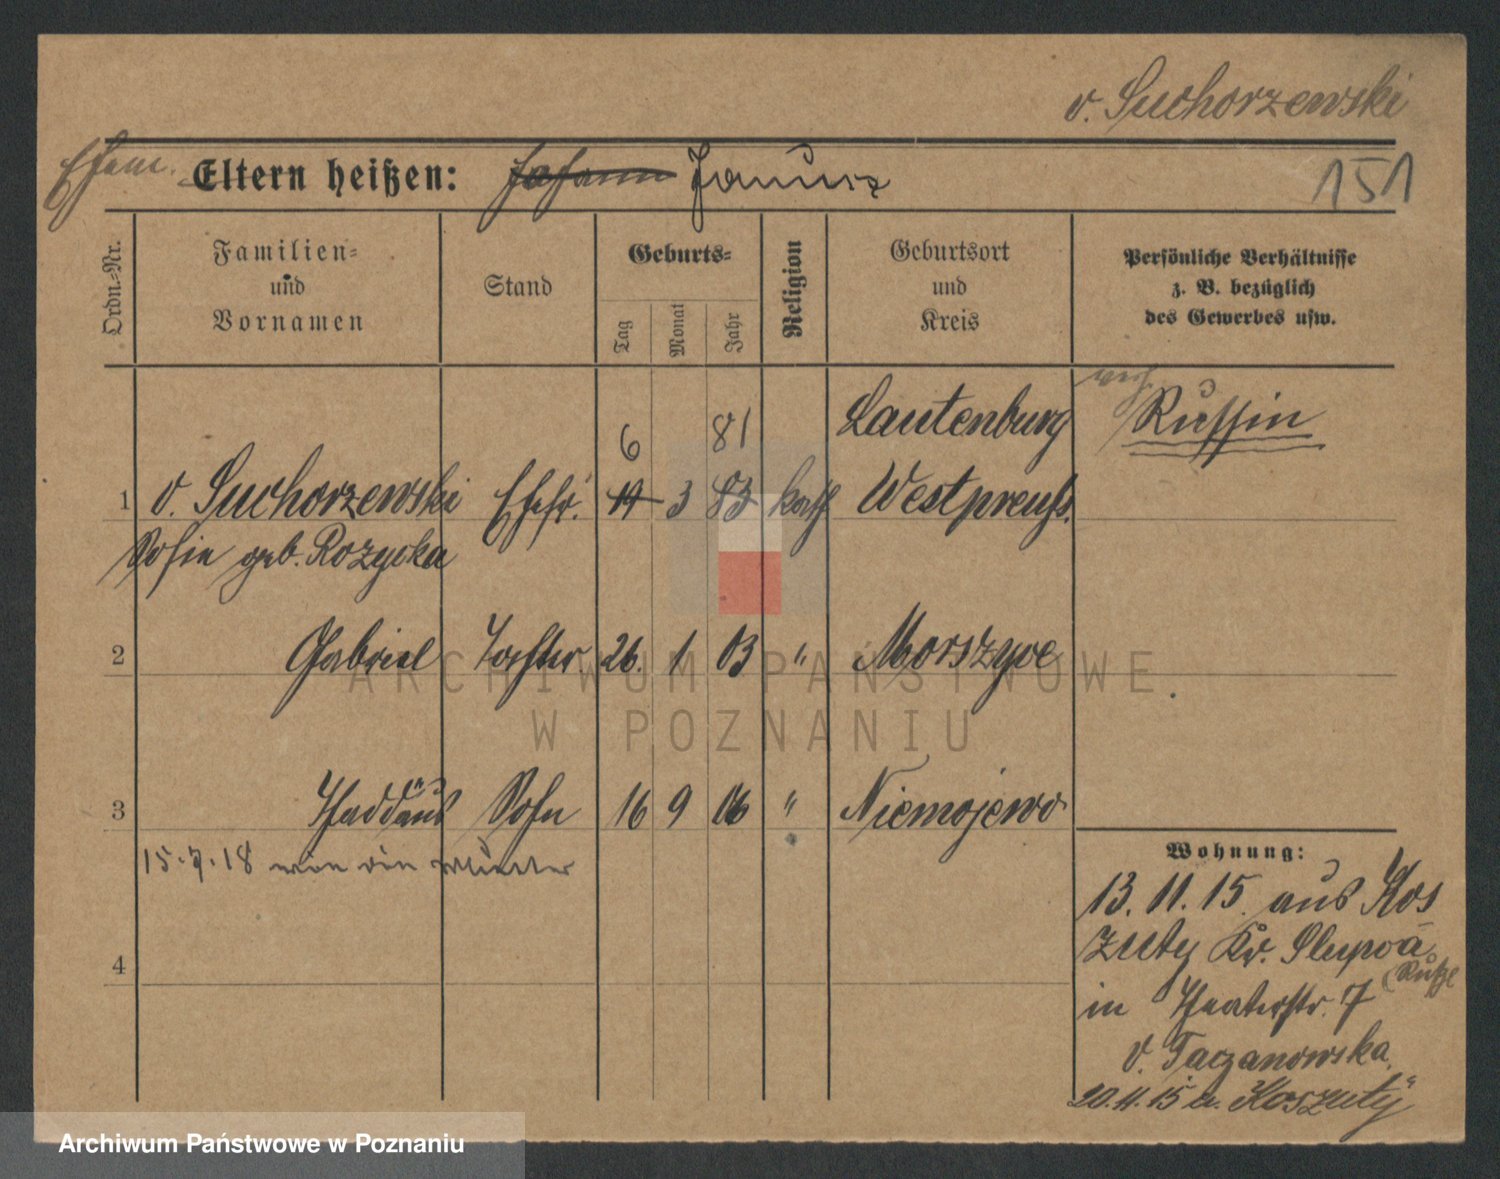 v. Suchorzewski
Ehem. Eltern heißen: Johann Janusz
151
Ordn.-Nr.
Familien-
und
Vornamen
Stand
Geburts-
Tag
Monat
Jahr
Religion
Geburtsort
und
Kreis
Persönliche Verhältnisse
z. B. bezüglich
des Gewerbes usw.
6 81 Lautenburg Russin
1 v. Suchorzewski Ehefr. 19 3 83 kath Westpreuß.
Sofie geb. Rozycka
2 Gabriel Tochter. 26. 1 03 " Morszywe
3 Thaddäus Sohn 16 9 06 " Niemojewo
15.7.18 wie die Mutter
4
Wohnung:
13.11.15 aus Kos
zuty Kr. Slupca
in Theaterstr. 7
v. Taczanowska
20.11.15 n. Koszuty
ARCHIWUM PAŃSTWOWE
W POZNANIU
Archiwum Państwowe w Poznaniu